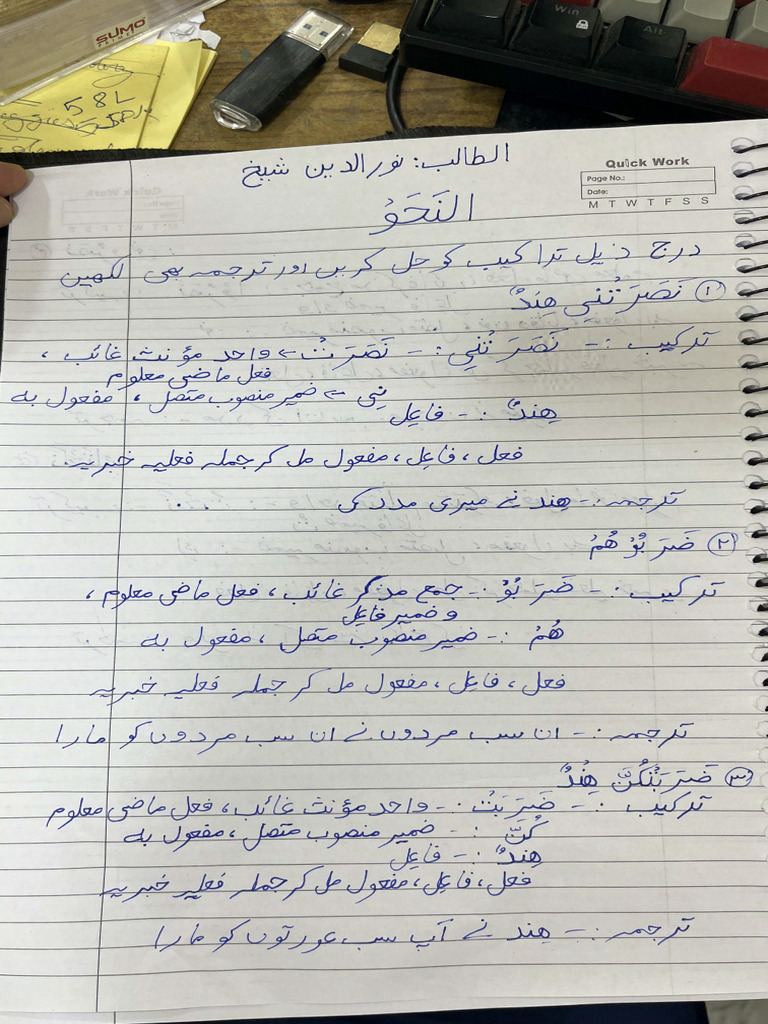 SUMO
PRIMER
58L
Win
Alt
Quick Work
Page No.:
Date:
M T W T F S S
الطالب: نورالدين شيخ
النَحَوُ
درج ذیل تراکیب کو حل کریں اور ترجمہ بھی لکھیں
① نَصَرَتْنِي هِندٌ
ترکیب :- نَصَرَتْنِي :- نَصَرَتْ ← واحد مؤنث غائب ،
فعل ماضی معلوم
نِي ← ضمیر منصوب متصل ، مفعول به
هِندٌ :- فاعِل
فعل ، فاعِل ، مفعول مل کر جملہ فعلیہ خبریہ
ترجمہ :- هِند نے میری مدد کی
② ضَرَبُوْهُمْ
ترکیب :- ضَرَبُوْ :- جمع مذکر غائب ، فعل ماضی معلوم ،
و ضمیر فاعِل
هُمْ :- ضمیر منصوب متصل ، مفعول به
فعل ، فاعِل ، مفعول مل کر جملہ فعلیہ خبریہ
ترجمہ :- ان سب مردوں نے ان سب مردوں کو مارا
③ ضَرَبَتْكُنَّ هِندٌ
ترکیب :- ضَرَبَتْ :- واحد مؤنث غائب ، فعل ماضی معلوم
كُنَّ :- ضمیر منصوب متصل ، مفعول به
هِندٌ :- فاعِل
فعل ، فاعِل ، مفعول مل کر جملہ فعلیہ خبریہ
ترجمہ :- هِند نے آپ سب عورتوں کو مارا